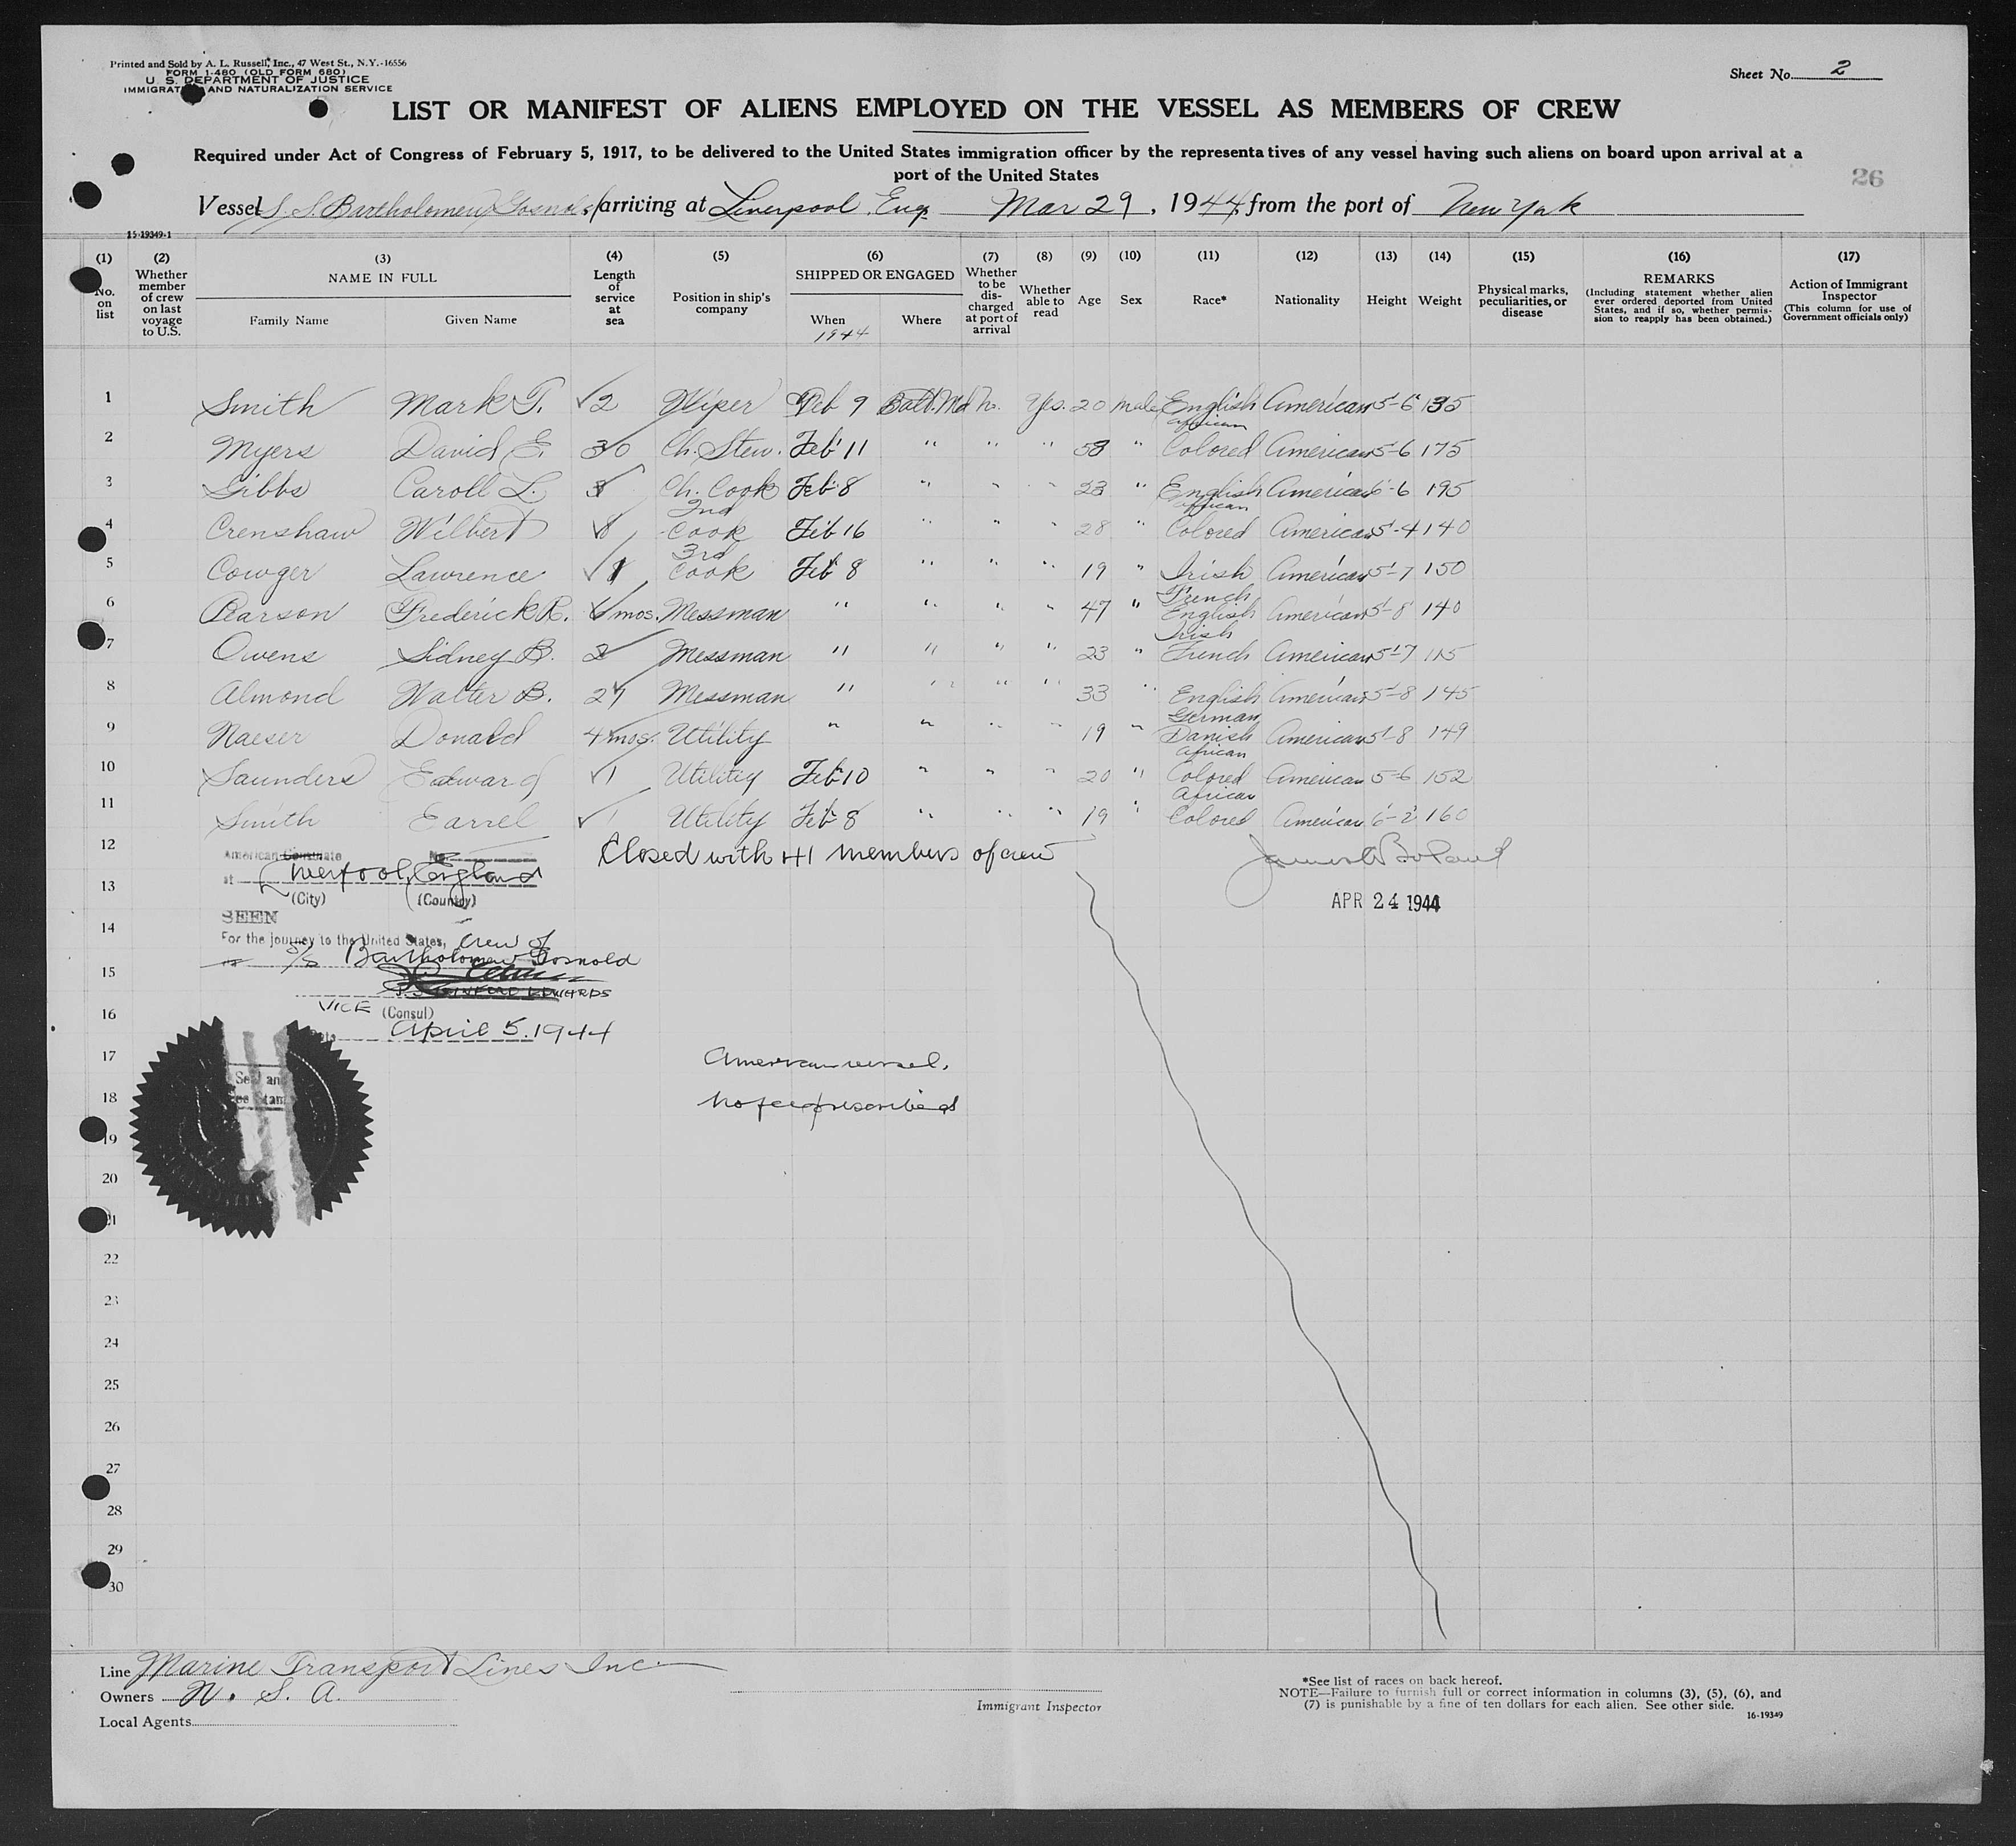 Printed and Sold by A. L. Russell, Inc., 47 West St., N.Y.-16556
FORM 1-480 (OLD FORM 680)
U. S. DEPARTMENT OF JUSTICE
IMMIGRATION AND NATURALIZATION SERVICE
Sheet No. 2
LIST OR MANIFEST OF ALIENS EMPLOYED ON THE VESSEL AS MEMBERS OF CREW
Required under Act of Congress of February 5, 1917, to be delivered to the United States immigration officer by the representatives of any vessel having such aliens on board upon arrival at a
port of the United States
26
Vessel S. S. Bartholomew Gosnold, arriving at Liverpool Eng. Mar 29, 1944, from the port of New York
15-19349-1
(1) No. on list
(2) Whether member of crew on last voyage to U.S.
(3) NAME IN FULL Family Name Given Name
(4) Length of service at sea
(5) Position in ship's company
(6) SHIPPED OR ENGAGED When 1944 Where
(7) Whether to be discharged at port of arrival
(8) Whether able to read
(9) Age
(10) Sex
(11) Race*
(12) Nationality
(13) Height
(14) Weight
(15) Physical marks, peculiarities, or disease
(16) REMARKS (Including statement whether alien ever ordered deported from United States, and if so, whether permission to reapply has been obtained.)
(17) Action of Immigrant Inspector (This column for use of Government officials only)
1 Smith Mark T. 2 Wiper Feb 9 Balt. Md No. Yes. 20 Male English American 5-6 135
2 Myers David E. 30 Ch. Stew. Feb 11 " " " 53 " African Colored American 5-6 175
3 Gibbs Caroll L. Ch. Cook Feb 8 " " " 23 " English American 6-6 195
4 Crenshaw Wilbert 8 2nd Cook Feb 16 " " " 28 " African Colored American 5-4 140
5 Cowger Lawrence 1 3rd Cook Feb 8 " " " 19 " Irish American 5-7 150
6 Pearson Frederick R. 6 mos. Messman " " " " 47 " French English American 5-8 140
7 Owens Sidney B. 2 Messman " " " " 23 " Irish French American 5-7 115
8 Almond Walter B. Messman " " " " 33 " English American 5-8 145
9 Naeser Donald 4 mos. Utility " " " " 19 " German Danish American 5-8 149
10 Saunders Edward 1 Utility Feb 10 " " " 20 " African Colored American 5-6 152
11 Smith Earrel 1 Utility Feb 8 " " " 19 " African Colored American 6-2 160
12 Closed with 41 members of crew
American Consulate No.
at Liverpool, England
(City) (Country)
13
APR 24 1944
SEEN
14
For the journey to the United States, Crew of
S/S Bartholomew Gosnold
15
EDWARDS
16
VICE (Consul)
Date April 5. 1944
17
American vessel.
18
No fee prescribed
19
20
21
22
23
24
25
26
27
28
29
30
Line Marine Transport Lines Inc.
Owners W. S. A.
Local Agents
Immigrant Inspector
*See list of races on back hereof.
NOTE—Failure to furnish full or correct information in columns (3), (5), (6), and
(7) is punishable by a fine of ten dollars for each alien. See other side.
16-19349